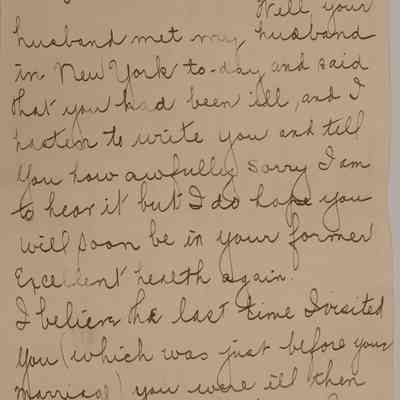 Well your
husband met my husband
in New York to-day and said
that you had been ill, and I
hasten to write you and tell
you how awfully sorry I am
to hear it but I do hope you
will soon be in your former
excellent health again.
I believe the last time I visited
you (which was just before your
marriage) you were ill then